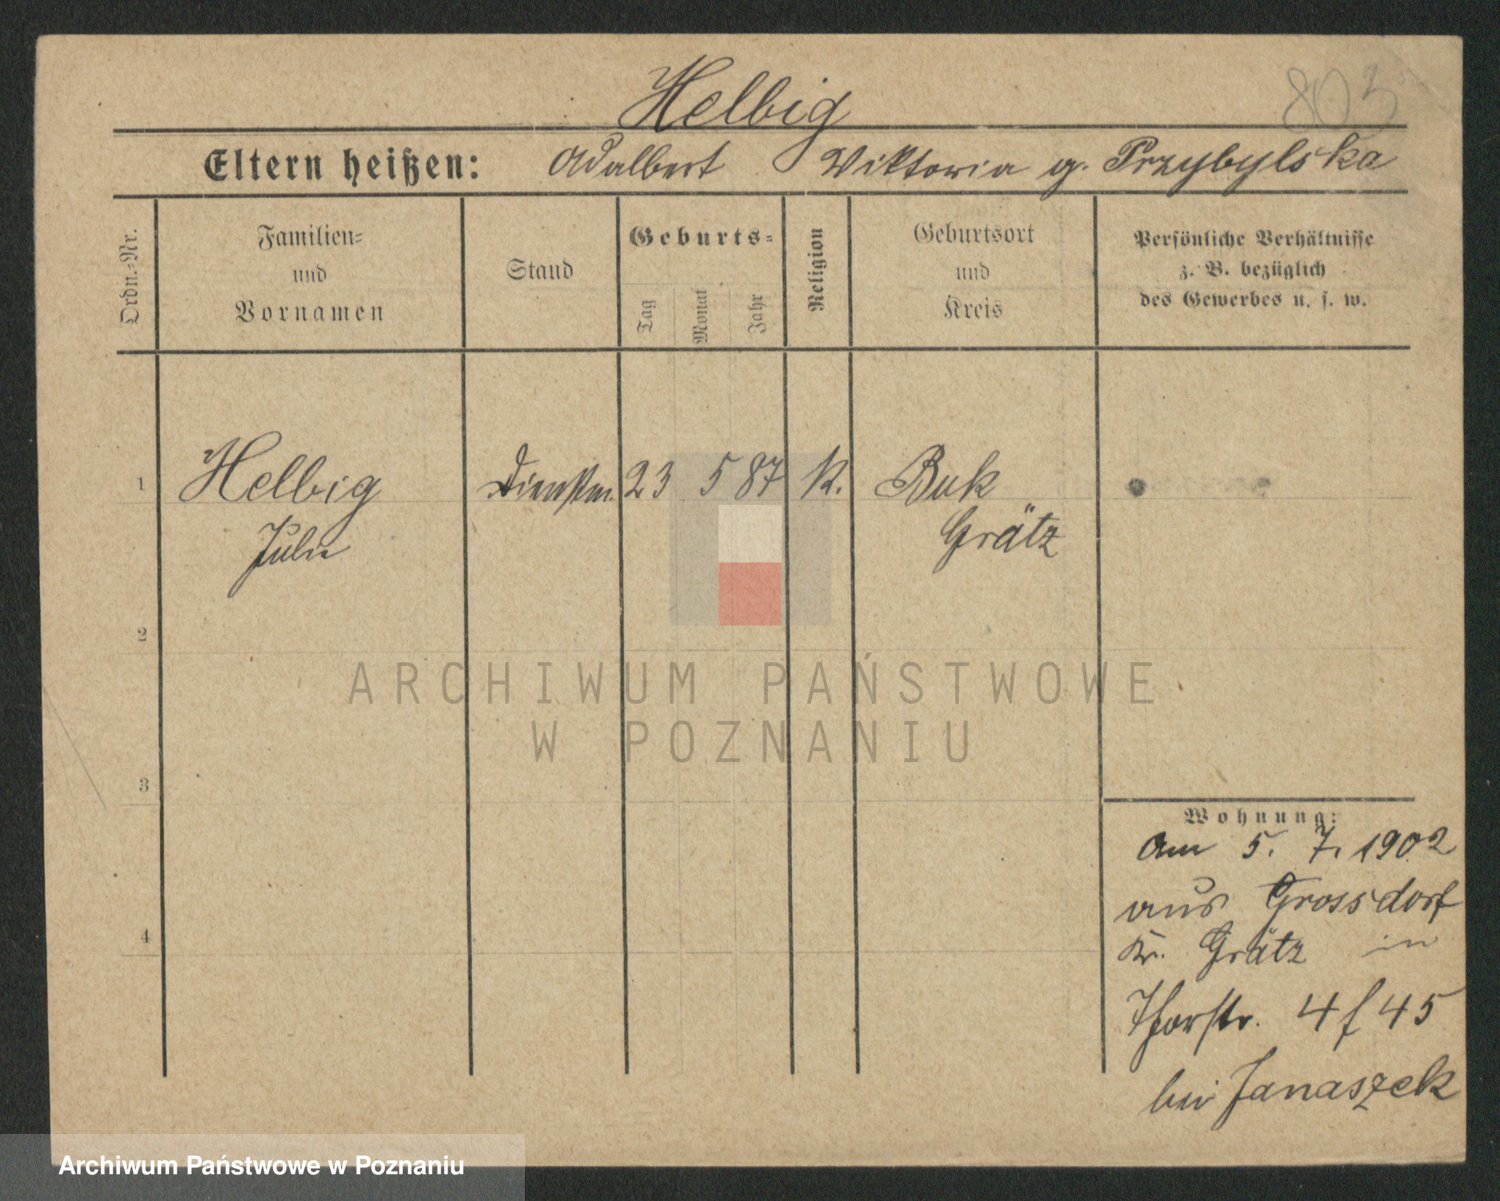 Helbig
803
Eltern heißen: Adalbert Viktoria g. Przybylska
Ordn.-Nr.
Familien-
und
Vornamen
Stand
Geburts-
Tag
Monat
Jahr
Religion
Geburtsort
und
Kreis
Persönliche Verhältnisse
z. B. bezüglich
des Gewerbes u. s. w.
1 Helbig Dienstm. 23 5 87 K. Buk
Grätz
2
3
4
Wohnung:
Am 5. 7. 1902
aus Grossdorf
Kr. Grätz in
Thorstr. 4 f 45
bei Janaszek
ARCHIWUM PAŃSTWOWE
W POZNANIU
Archiwum Państwowe w Poznaniu